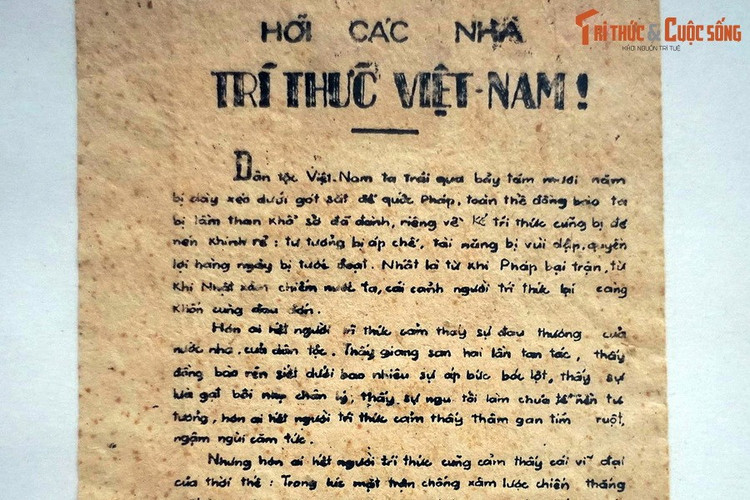 TRI THỨC & CUỘC SỐNG
KHƠI NGUỒN TRI TUỆ
HỠI CÁC NHÀ
TRÍ THỨC VIỆT-NAM!
Dân tộc Việt-Nam ta trải qua bảy tám mươi năm
bị dày xéo dưới gót sắt đế quốc Pháp, toàn thể đồng bào ta
bị lầm than khổ sở đã đành, riêng về kẻ trí thức cũng bị đè
nén khinh rẻ: tư tưởng bị áp chế, tài năng bị vùi dập, quyền
lợi hàng ngày bị tước đoạt. Nhất là từ khi Pháp bại trận, từ
khi Nhật xâm chiếm nước ta, cái cảnh người trí thức lại càng
khốn cùng đau đớn.
Hơn ai hết người trí thức cảm thấy sự đau thương của
nước nhà, của dân tộc. Thấy giang san hai lần tan tác, thấy
đồng bào rên siết dưới bao nhiêu sự áp bức bóc lột, thấy sự
lừa gạt bôi nhọ chân lý, thấy sự ngu tối làm chưa tê nền tư
tưởng, hơn ai hết người trí thức cảm thấy thâm gan tím ruột,
ngậm ngùi căm tức.
Nhưng hơn ai hết người trí thức cũng cảm thấy cái vĩ đại
của thời thế: Trong lúc mặt trận chống xâm lược chiến thắng